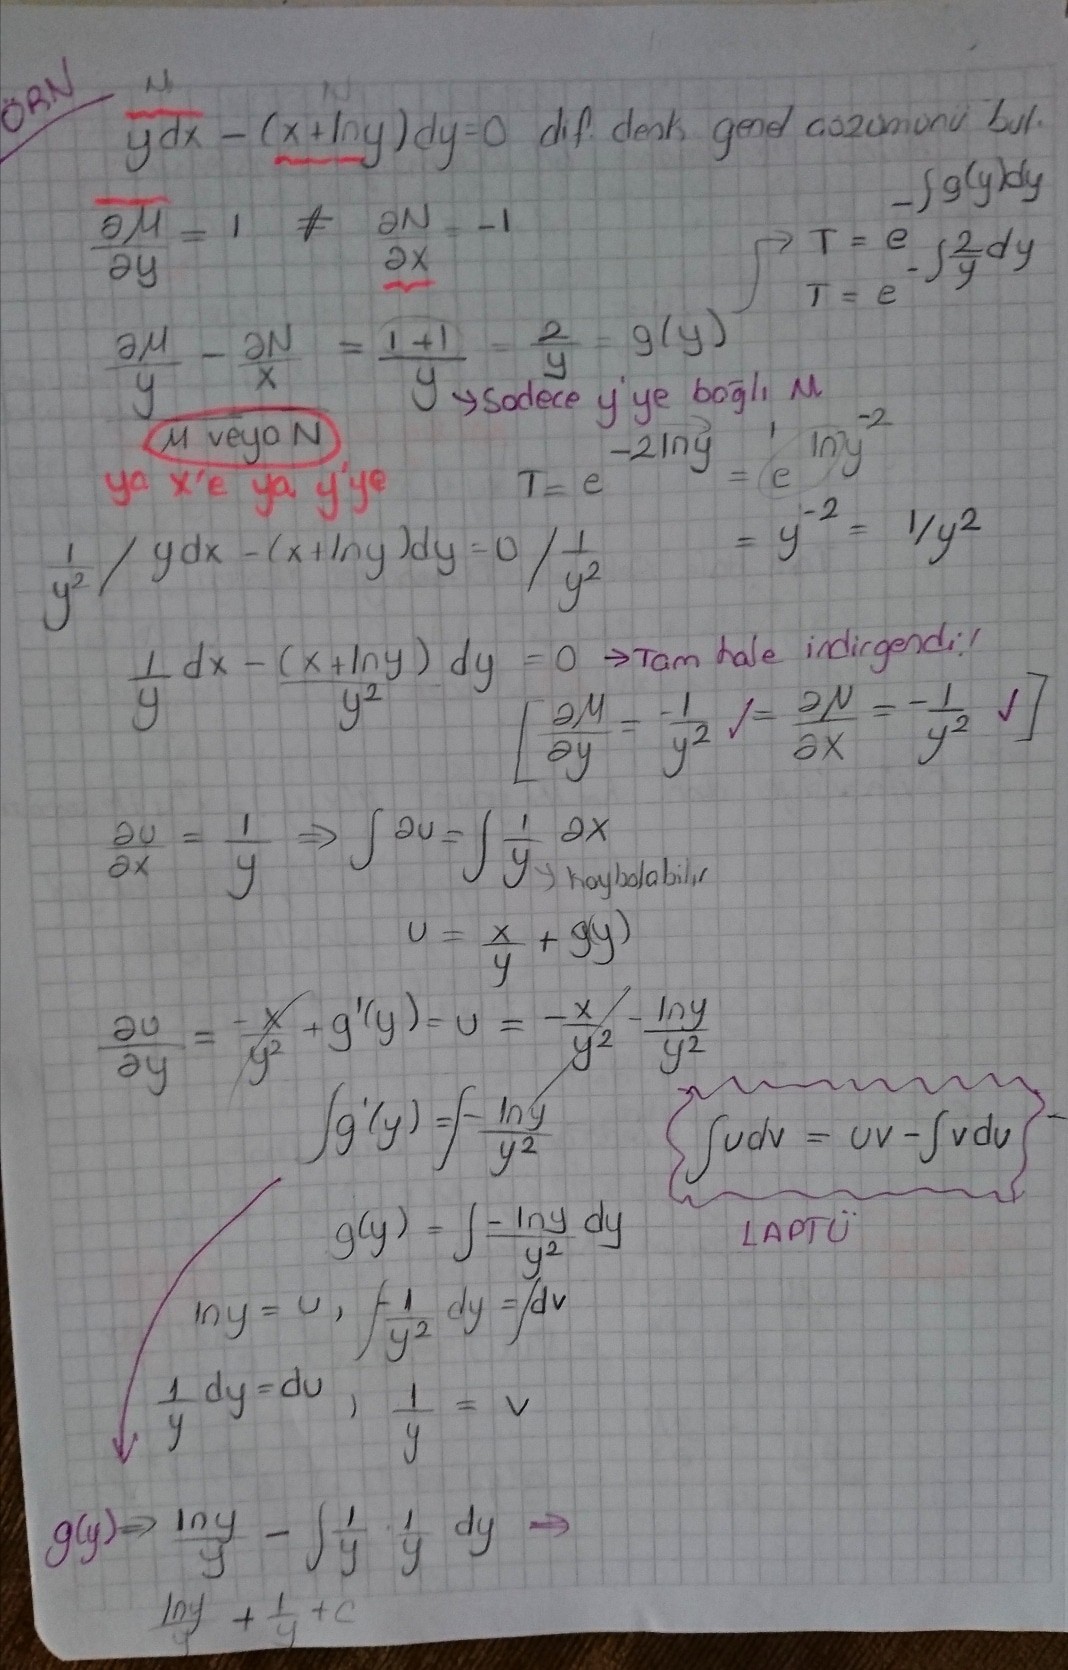 ÖRN
M N
ydx - (x+lny)dy=0 dif. denk. genel çözümünü bul.
∂M/∂y = 1 ≠ ∂N/∂x = -1
T = e^(-∫g(y)dy)
T = e^(-∫2/y dy)
∂M/y - ∂N/x = (1+1)/y = 2/y = g(y)
M veya N
→ sadece y'ye bağlı M
ya x'e ya y'ye
T = e^(-2lny) = e^(lny^-2)
= y^-2 = 1/y²
1/y² / ydx - (x+lny)dy = 0 / 1/y²
1/y dx - (x+lny)/y² dy = 0 → Tam hale indirgendi!
[∂M/∂y = -1/y² ✓ = ∂N/∂x = -1/y² ✓]
∂u/∂x = 1/y ⇒ ∫∂u = ∫1/y ∂x
→ kaybolabilir
u = x/y + g(y)
∂u/∂y = -x/y² + g'(y) = u = -x/y² - lny/y²
∫g'(y) = ∫-lny/y²
∫udv = uv - ∫vdu
LAPTÜ
g(y) = ∫-lny/y² dy
lny = u, ∫-1/y² dy = ∫dv
1/y dy = du, 1/y = v
g(y) ⇒ lny/y - ∫1/y · 1/y dy ⇒
lny/y + 1/y + c